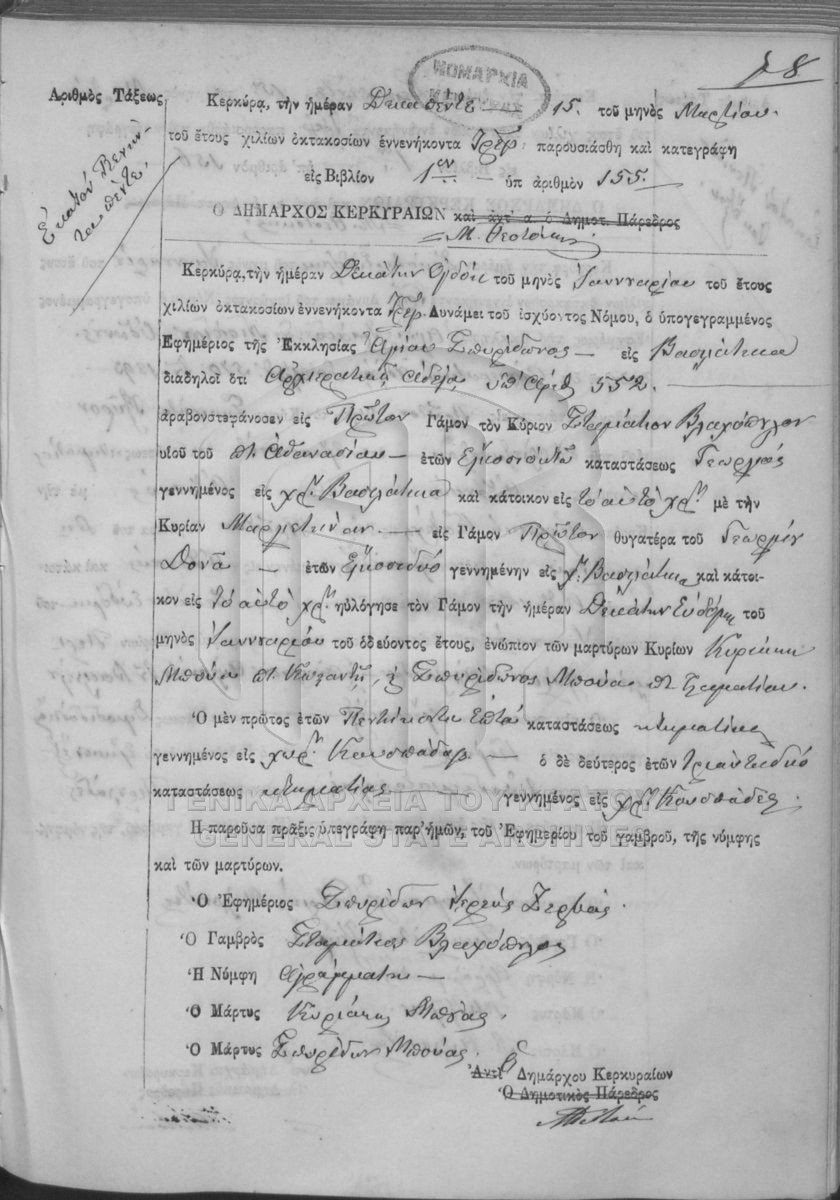 78
ΝΟΜΑΡΧΙΑ
Ἀριθμὸς Τάξεως
Ἑκατὸν Πενήν-
τα πέντε.
Κερκύρᾳ, τὴν ἡμέραν Δεκαπέντε 15. τοῦ μηνὸς Μαρτίου.
τοῦ ἔτους χιλίων ὀκτακοσίων ἐννενήκοντα παρουσιάσθη καὶ κατεγράφη
εἰς Βιβλίον 1ον ὑπ ἀριθμὸν 155.
Ο ΔΗΜΑΡΧΟΣ ΚΕΡΚΥΡΑΙΩΝ καὶ ἀντ' α. ὁ Δημοτ. Πάρεδρος
Μ. Θεοτόκης
Κερκύρᾳ, τὴν ἡμέραν Δεκάτην τοῦ μηνὸς Ἰαννουαρίου τοῦ ἔτους
χιλίων ὀκτακοσίων ἐννενήκοντα Δυνάμει τοῦ ἰσχύοντος Νόμου, ὁ ὑπογεγραμμένος
Ἐφημέριος τῆς Ἐκκλησίας Ἁγίου Σπυρίδωνος εἰς Βασιλάτικα
διαδηλοῖ ὅτι Ἀρχιερατικῆς ἀδείας ὑπ' ἀριθ 552.
ἀραβονστεφάνοσεν εἰς Πρῶτον Γάμον τὸν Κύριον Σταμάτιον Βλαχόπουλον
υἱοῦ τοῦ πτ. Ἀθανασίου ἐτῶν Εἰκοσιοκτώ καταστάσεως Γεωργός
γεννημένος εἰς χρ. Βασιλάτικα καὶ κάτοικον εἰς τὸ αὐτὸ χρ. μὲ τὴν
Κυρίαν εἰς Γάμον Πρῶτον θυγατέρα τοῦ Γεωργίου
ἐτῶν Εἰκοσιδύο γεννημένην εἰς χ. Βασιλάτικα καὶ κάτοι-
κον εἰς τὸ αὐτὸ χρ. ηὐλόγησε τὸν Γάμον τὴν ἡμέραν Δεκάτην Ἑβδόμην τοῦ
μηνὸς Ἰαννουαρίου τοῦ ὁδεύοντος ἔτους, ἐνώπιον τῶν μαρτύρων Κυρίων Κυριάκη
Μπούα πτ. Σπυρίδωνος Μπούα πτ Σταματίου.
Ὁ μὲν πρῶτος ἐτῶν Πεντήκοντα Ἑπτά καταστάσεως κτηματίας
γεννημένος εἰς χωρ. Κουσπάδες ὁ δὲ δεύτερος ἐτῶν τριανταδύο
καταστάσεως κτηματίας γεννημένος εἰς χρ. Κουσπάδες.
ΓΕΝΙΚΑ ΑΡΧΕΙΑ ΤΟΥ ΚΡΑΤΟΥΣ
Ἡ παροῦσα πρᾶξις ὑπεγράφη παρ' ἡμῶν, τοῦ Ἐφημερίου τοῦ γαμβροῦ, τῆς νύμφης
GENERAL STATE ARCHIVES
καὶ τῶν μαρτύρων.
Ὁ Ἐφημέριος Σπυρίδων Ἱερεύς Ζερβάς.
Ὁ Γαμβρὸς Σταμάτιος Βλαχόπουλος
Ἡ Νύμφη ἀγράμματη
Ὁ Μάρτυς Κυριάκης Μπούας.
Ὁ Μάρτυς Σπυρίδων Μπούας.
Ἀντὶ Δημάρχου Κερκυραίων
Ὁ Δημοτικὸς Πάρεδρος